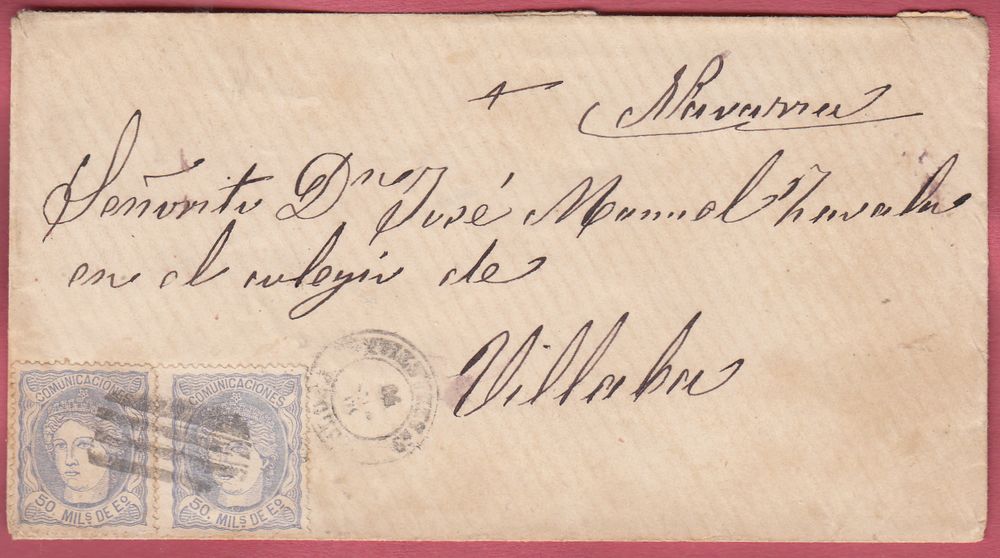 Navarra
Señorito Dn José Manuel Zavala
en el colegio de
Villaba
COMUNICACIONES
50 MILS DE Eo
COMUNICACIONES
50 MILS DE Eo